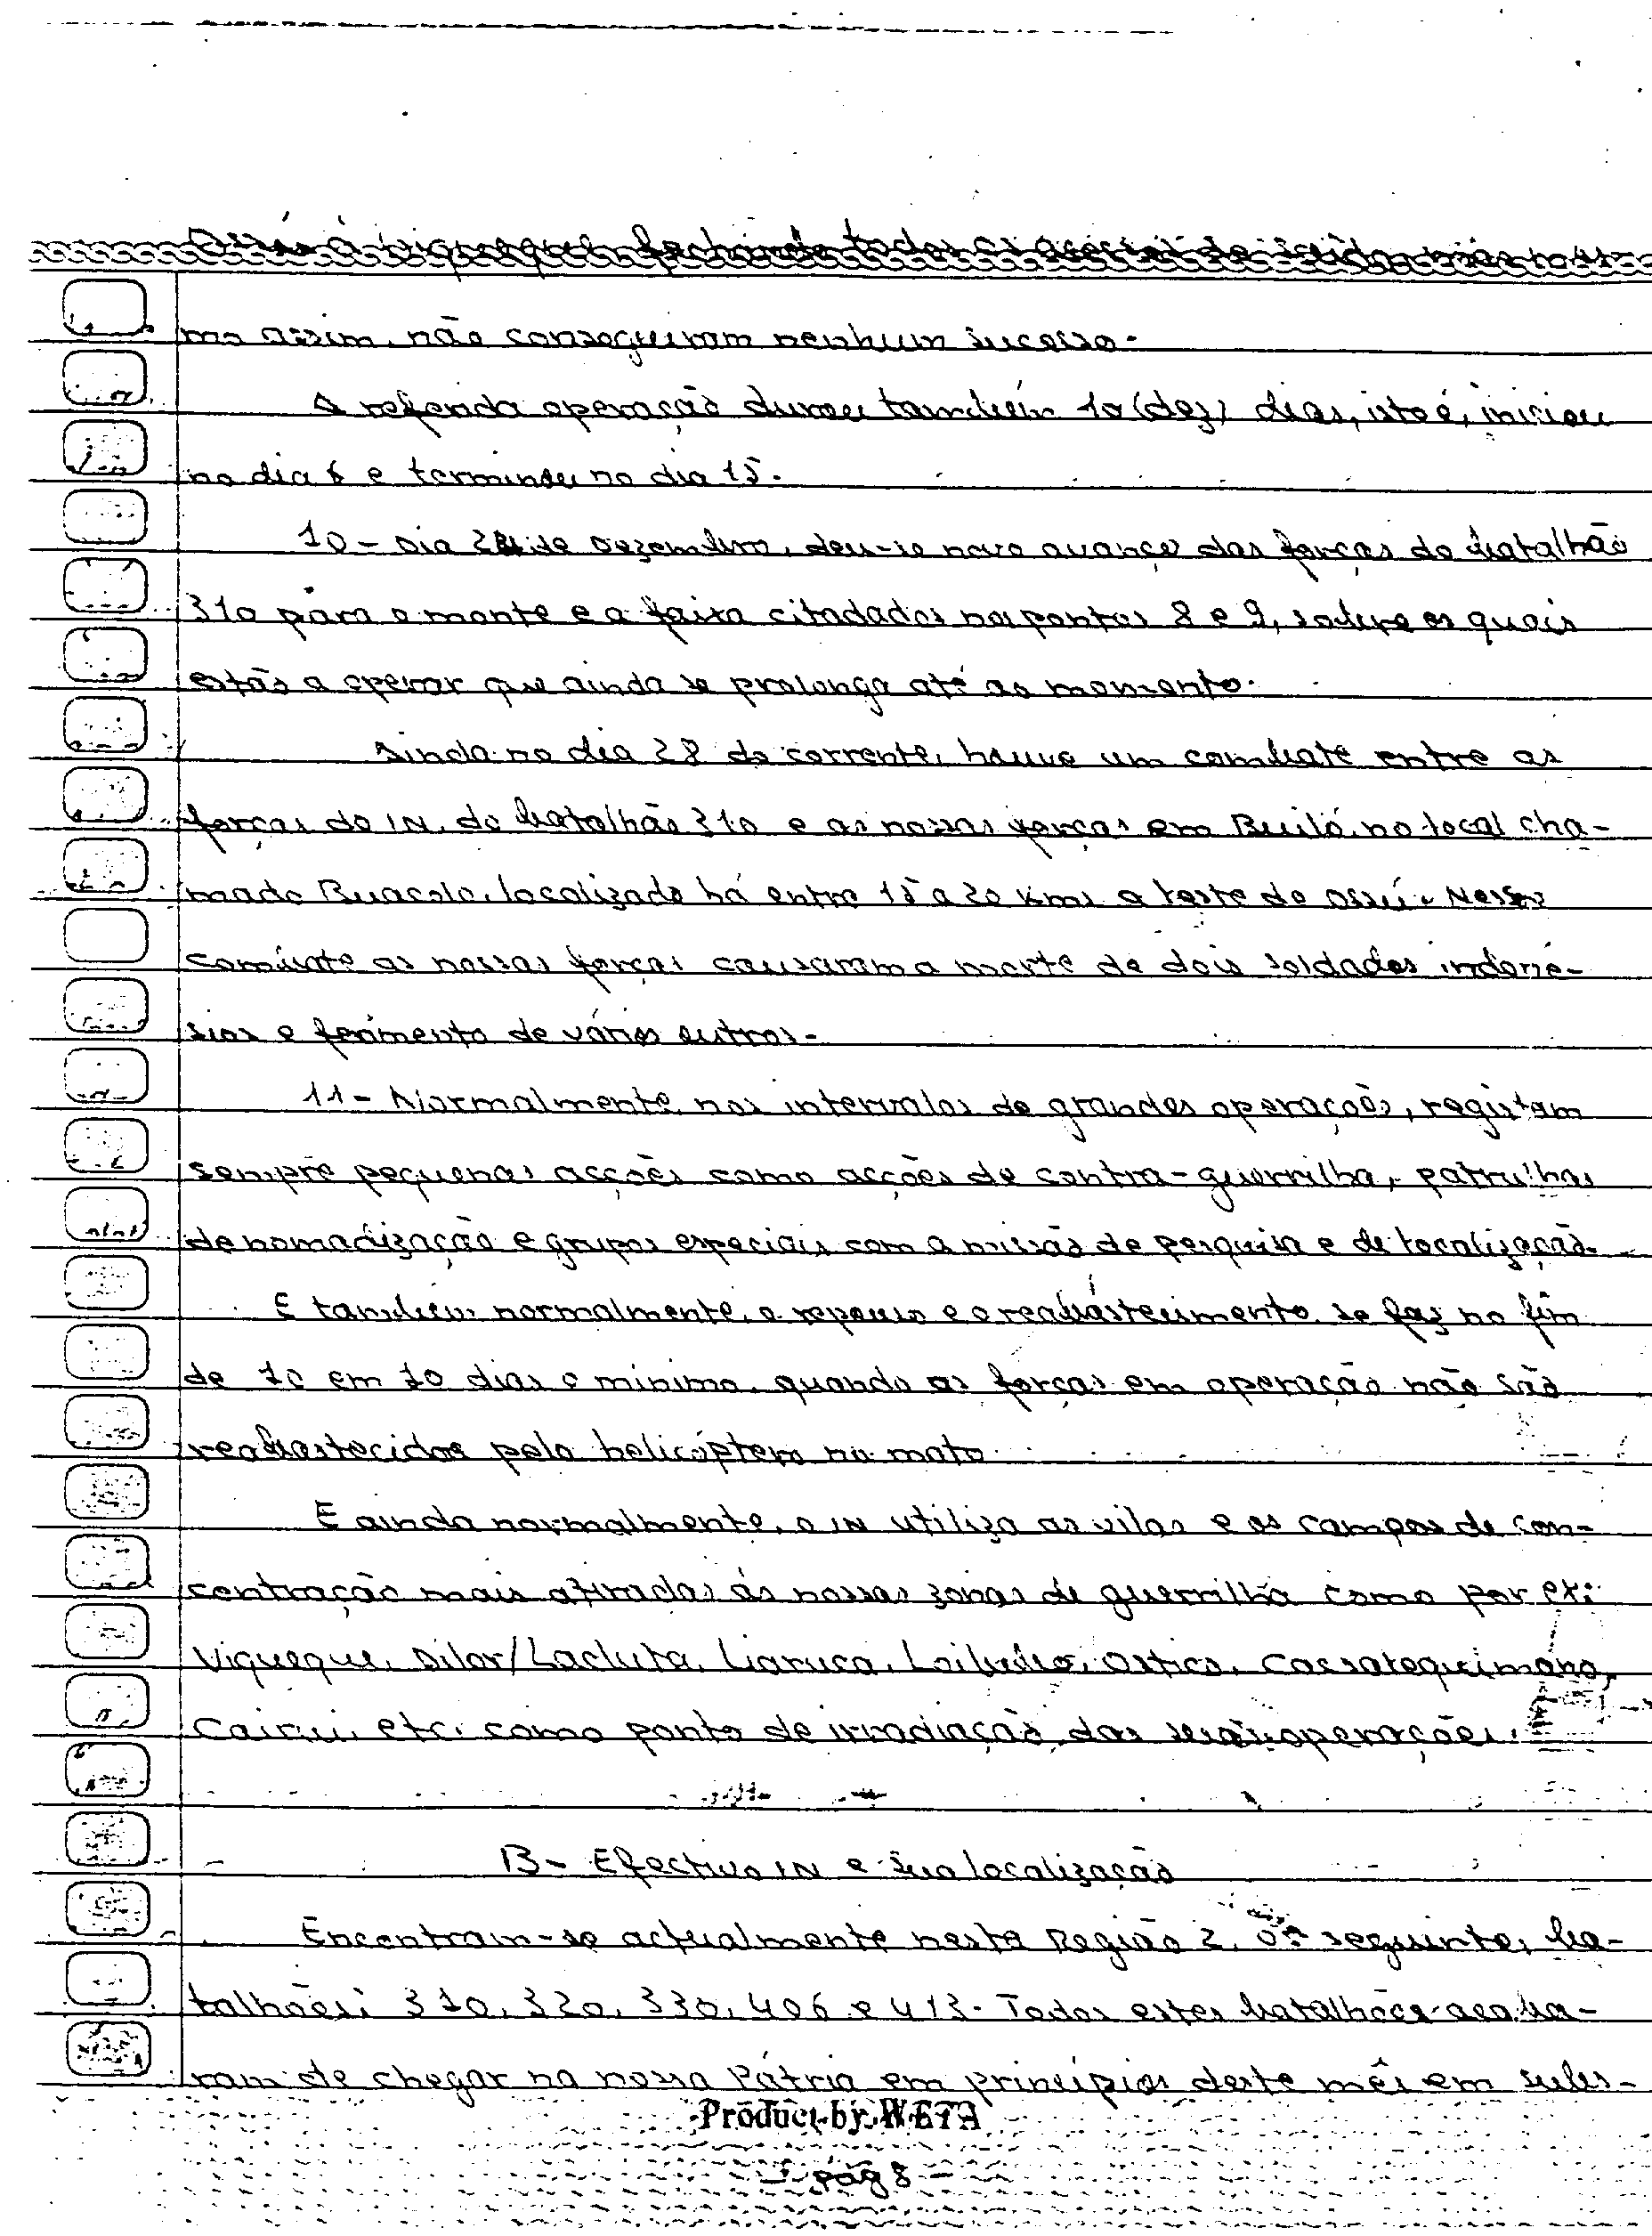 Ossú a Viqueque fechando todos os acessos de saída mas mes-
mo assim, não conseguiram nenhum sucesso.
A referida operação durou também 10 (dez) dias, isto é, iniciou
no dia 6 e terminou no dia 15.
10 - Dia de Dezembro, deu-se novo avanço das forças do batalhão
310 para o monte e a faixa citadados nos pontos 8 e 9, sobre os quais
estão a operar que ainda se prolonga até ao momento.
Ainda no dia 28 do corrente, houve um combate entre as
forças do IN, do batalhão 310 e as nossas forças em Builó, no local cha-
mado Buacolo, localizado há entre 15 a 20 kms a leste de Ossú. Nesse
combate as nossas forças causaram a morte de dois soldados indoné-
sios e ferimento de vários outros.
11 - Normalmente, nos intervalos de grandes operações, registam
sempre pequenas acções como acções de contra-guerrilha, patrulhas
de nomadização e grupos especiais com a missão de pesquisa e de localização.
E também normalmente, o repouso e o reabastecimento se faz no fim
de 10 em 10 dias o mínimo, quando as forças em operação não são
reabastecidos pelo helicóptero no mato.
E ainda normalmente, o IN utiliza as vilas e os campos de con-
centração mais atiradas às nossas zonas de guerrilha como por ex:
Viqueque, Dilor/Lacluta, Liaruca, Loihuno, Ostico, Cassatequimano,
Cairui, etc. como ponto de irradiação das suas operações.
B - Efectivo IN e sua localização
Encontram-se actualmente nesta Região 2, os seguintes ba-
talhões: 310, 320, 330, 406 e 413. Todos estes batalhões acaba-
ram de chegar na nossa Pátria em princípios deste mês em subs-
Product by WETA
- pág 8 -